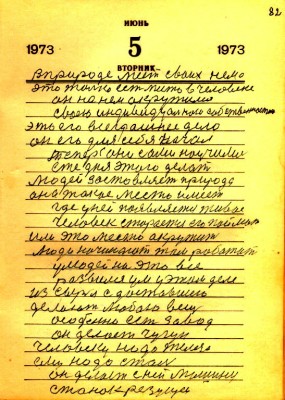 82
ИЮНЬ
1973 5 1973
ВТОРНИК
в природе нет своих немо
это только есть мить в человеке
он на нем окружили
свою индивидуальную собственность
это его всегдашнее дело
он его для себя начал
теперь они сами научили
сте дня этого делат
людей заставляет природа
она такое место имеет
где у ней появляется живое
человек старается его поймат
им это место окружит
люди начинают там работат
у людей на это все
развился ум у этом деле
из сырья с доставшего
делают любою вещ
особенно ест завод
он делает чугун
человеку надо железо
ели надо стал
он делает с ней машину
станок режущий